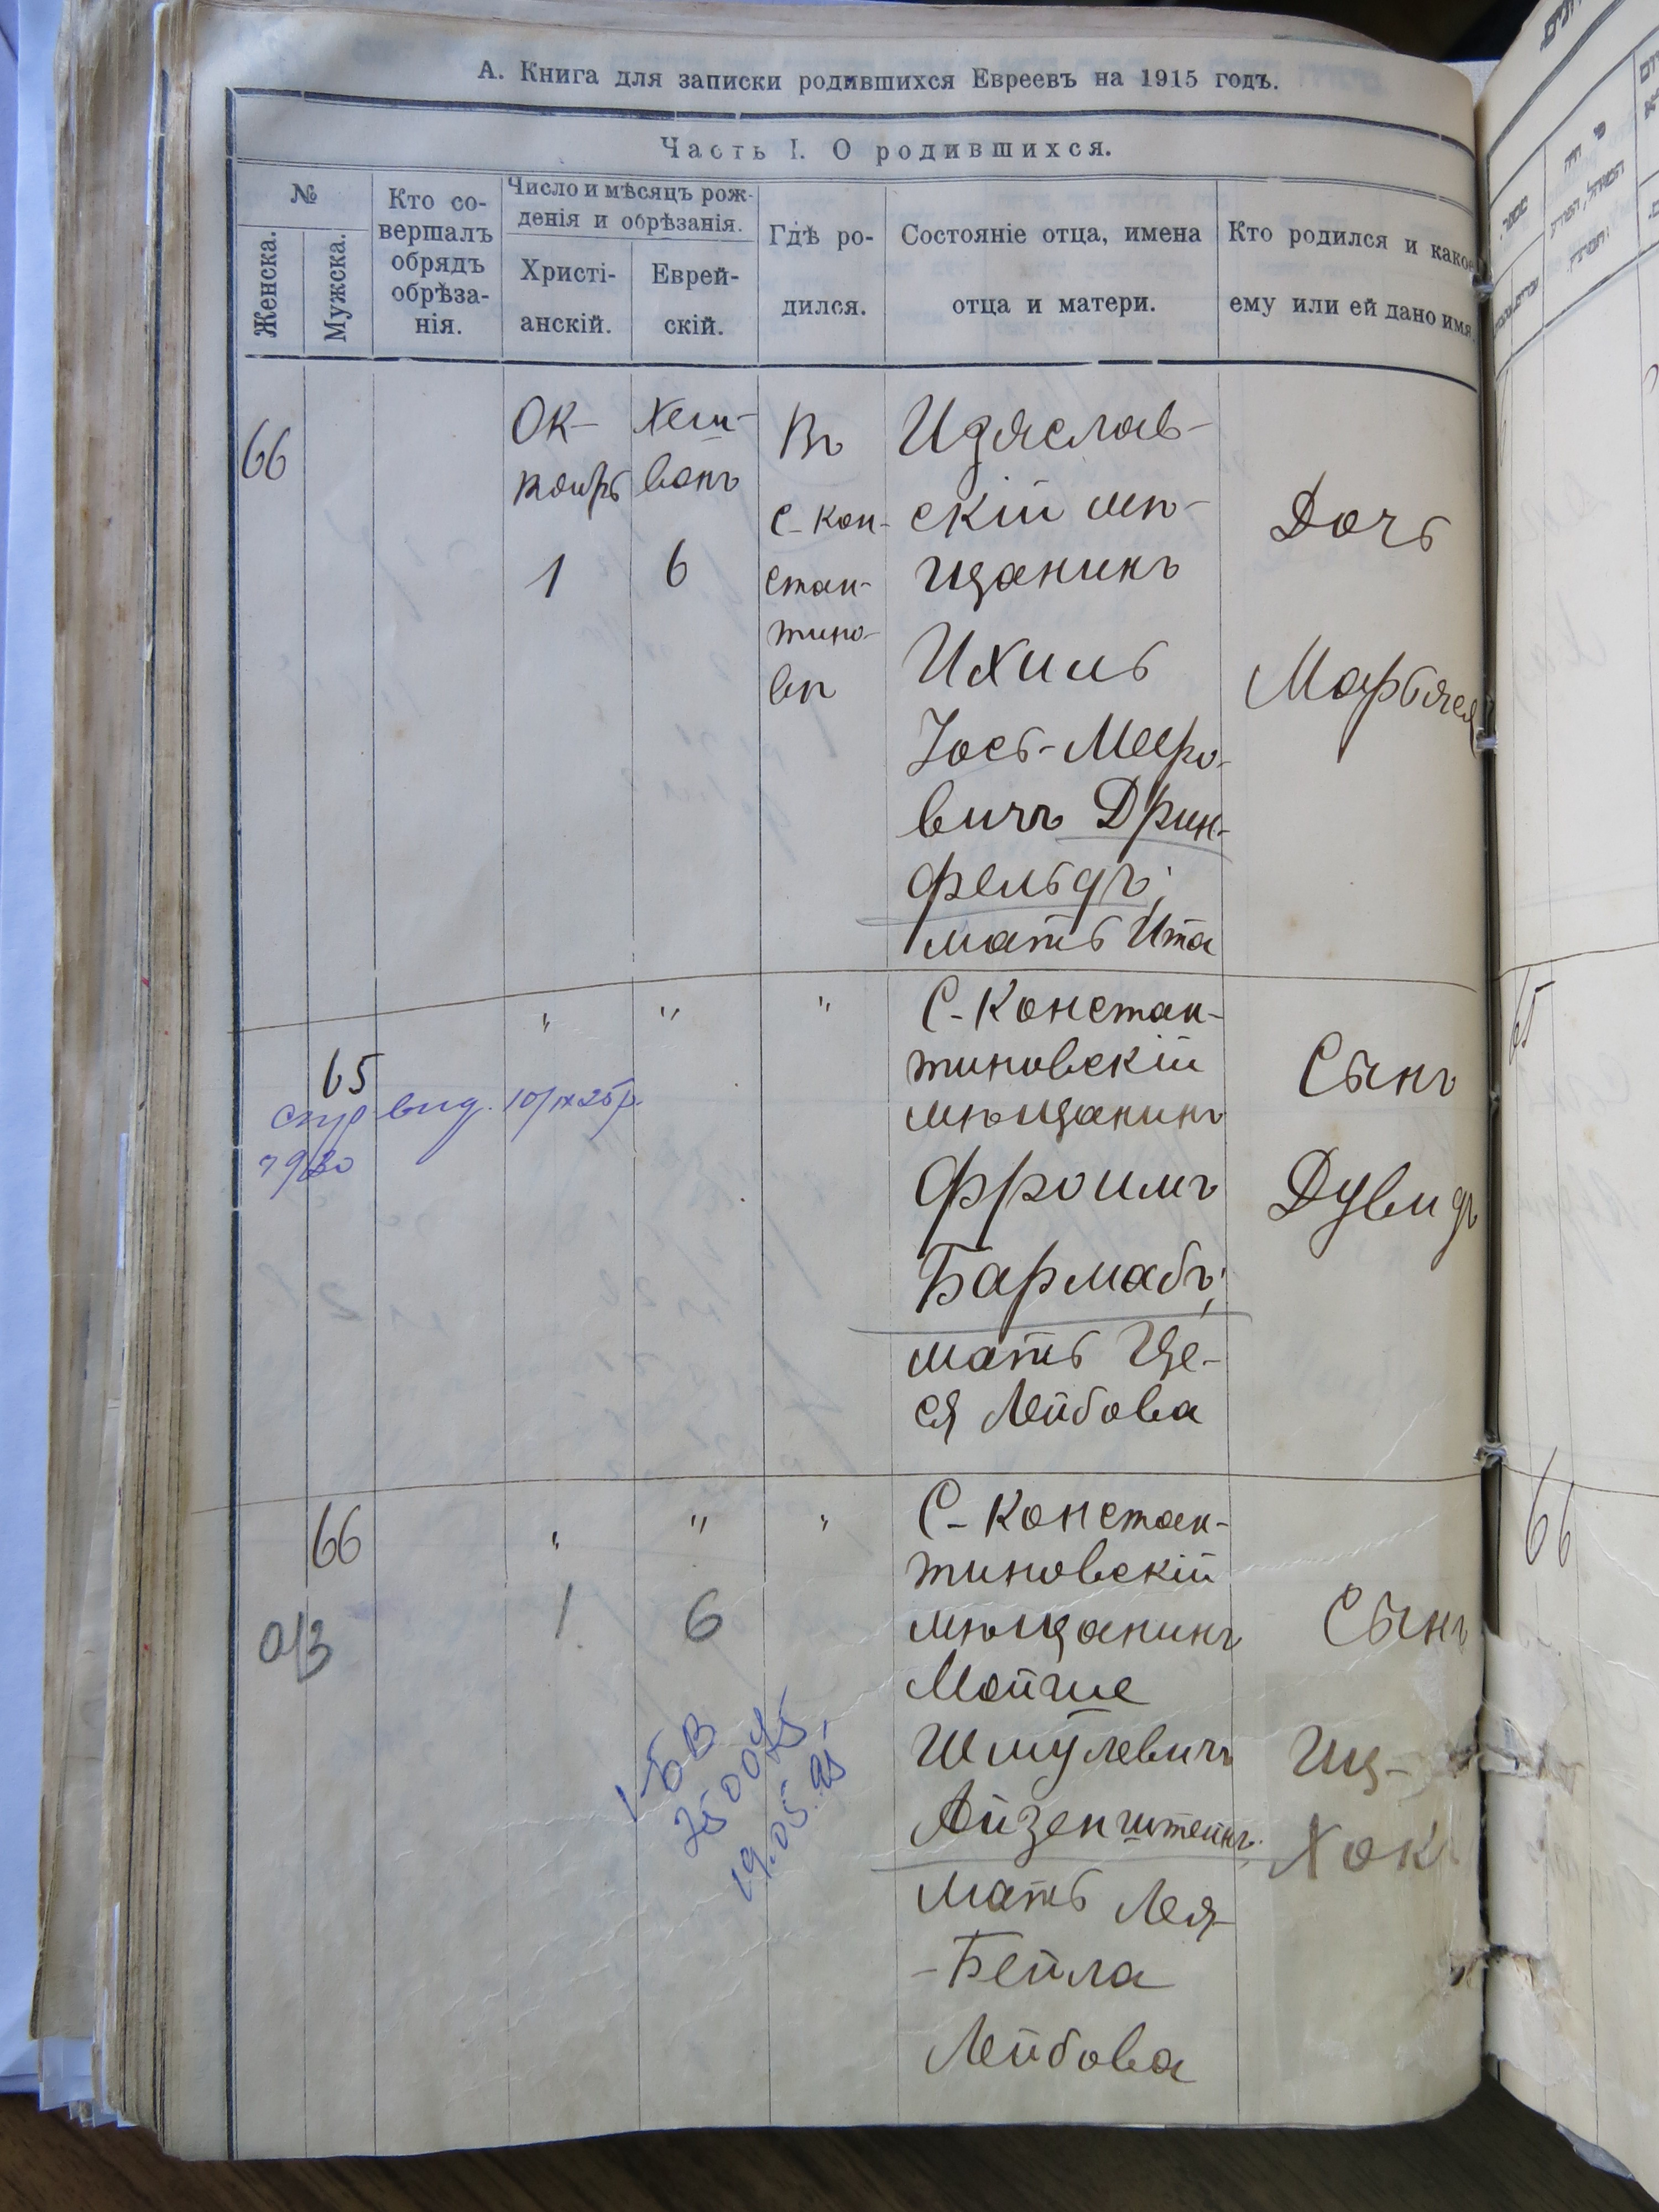 А. Книга для записки родившихся Евреевъ на 1915 годъ.
Часть I. О родившихся.
№
Женска.
Мужска.
Кто со-
вершалъ
обрядъ
обрѣза-
нія.
Число и мѣсяцъ рож-
денія и обрѣзанія.
Христі-
анскій.
Еврей-
скій.
Гдѣ ро-
дился.
Состояніе отца, имена
отца и матери.
Кто родился и какое
ему или ей дано имя
66
Ок-
тябрь
1
Хеш-
ванъ
6
Въ
С-Кон-
стан-
тино-
вѣ
Изяслав-
скій мѣ-
щанинъ
Ихиль
Іось-Мееро-
вичъ Дрин-
фельдъ;
мать Ита
Дочь
65
"
"
"
С-Констан-
тиновскій
мѣщанинъ
Фроимъ
Бармабъ;
мать Це-
ся Лейбова
Сынъ
Дувидъ
79/30
66
"
"
"
о/з
1
6
С-Констан-
тиновскій
мѣщанинъ
Мойше
Шмулевичъ
Айзенштейнъ;
мать Лея-
-Бейла
Лейбова
Сынъ
Иц-
хок
65
66